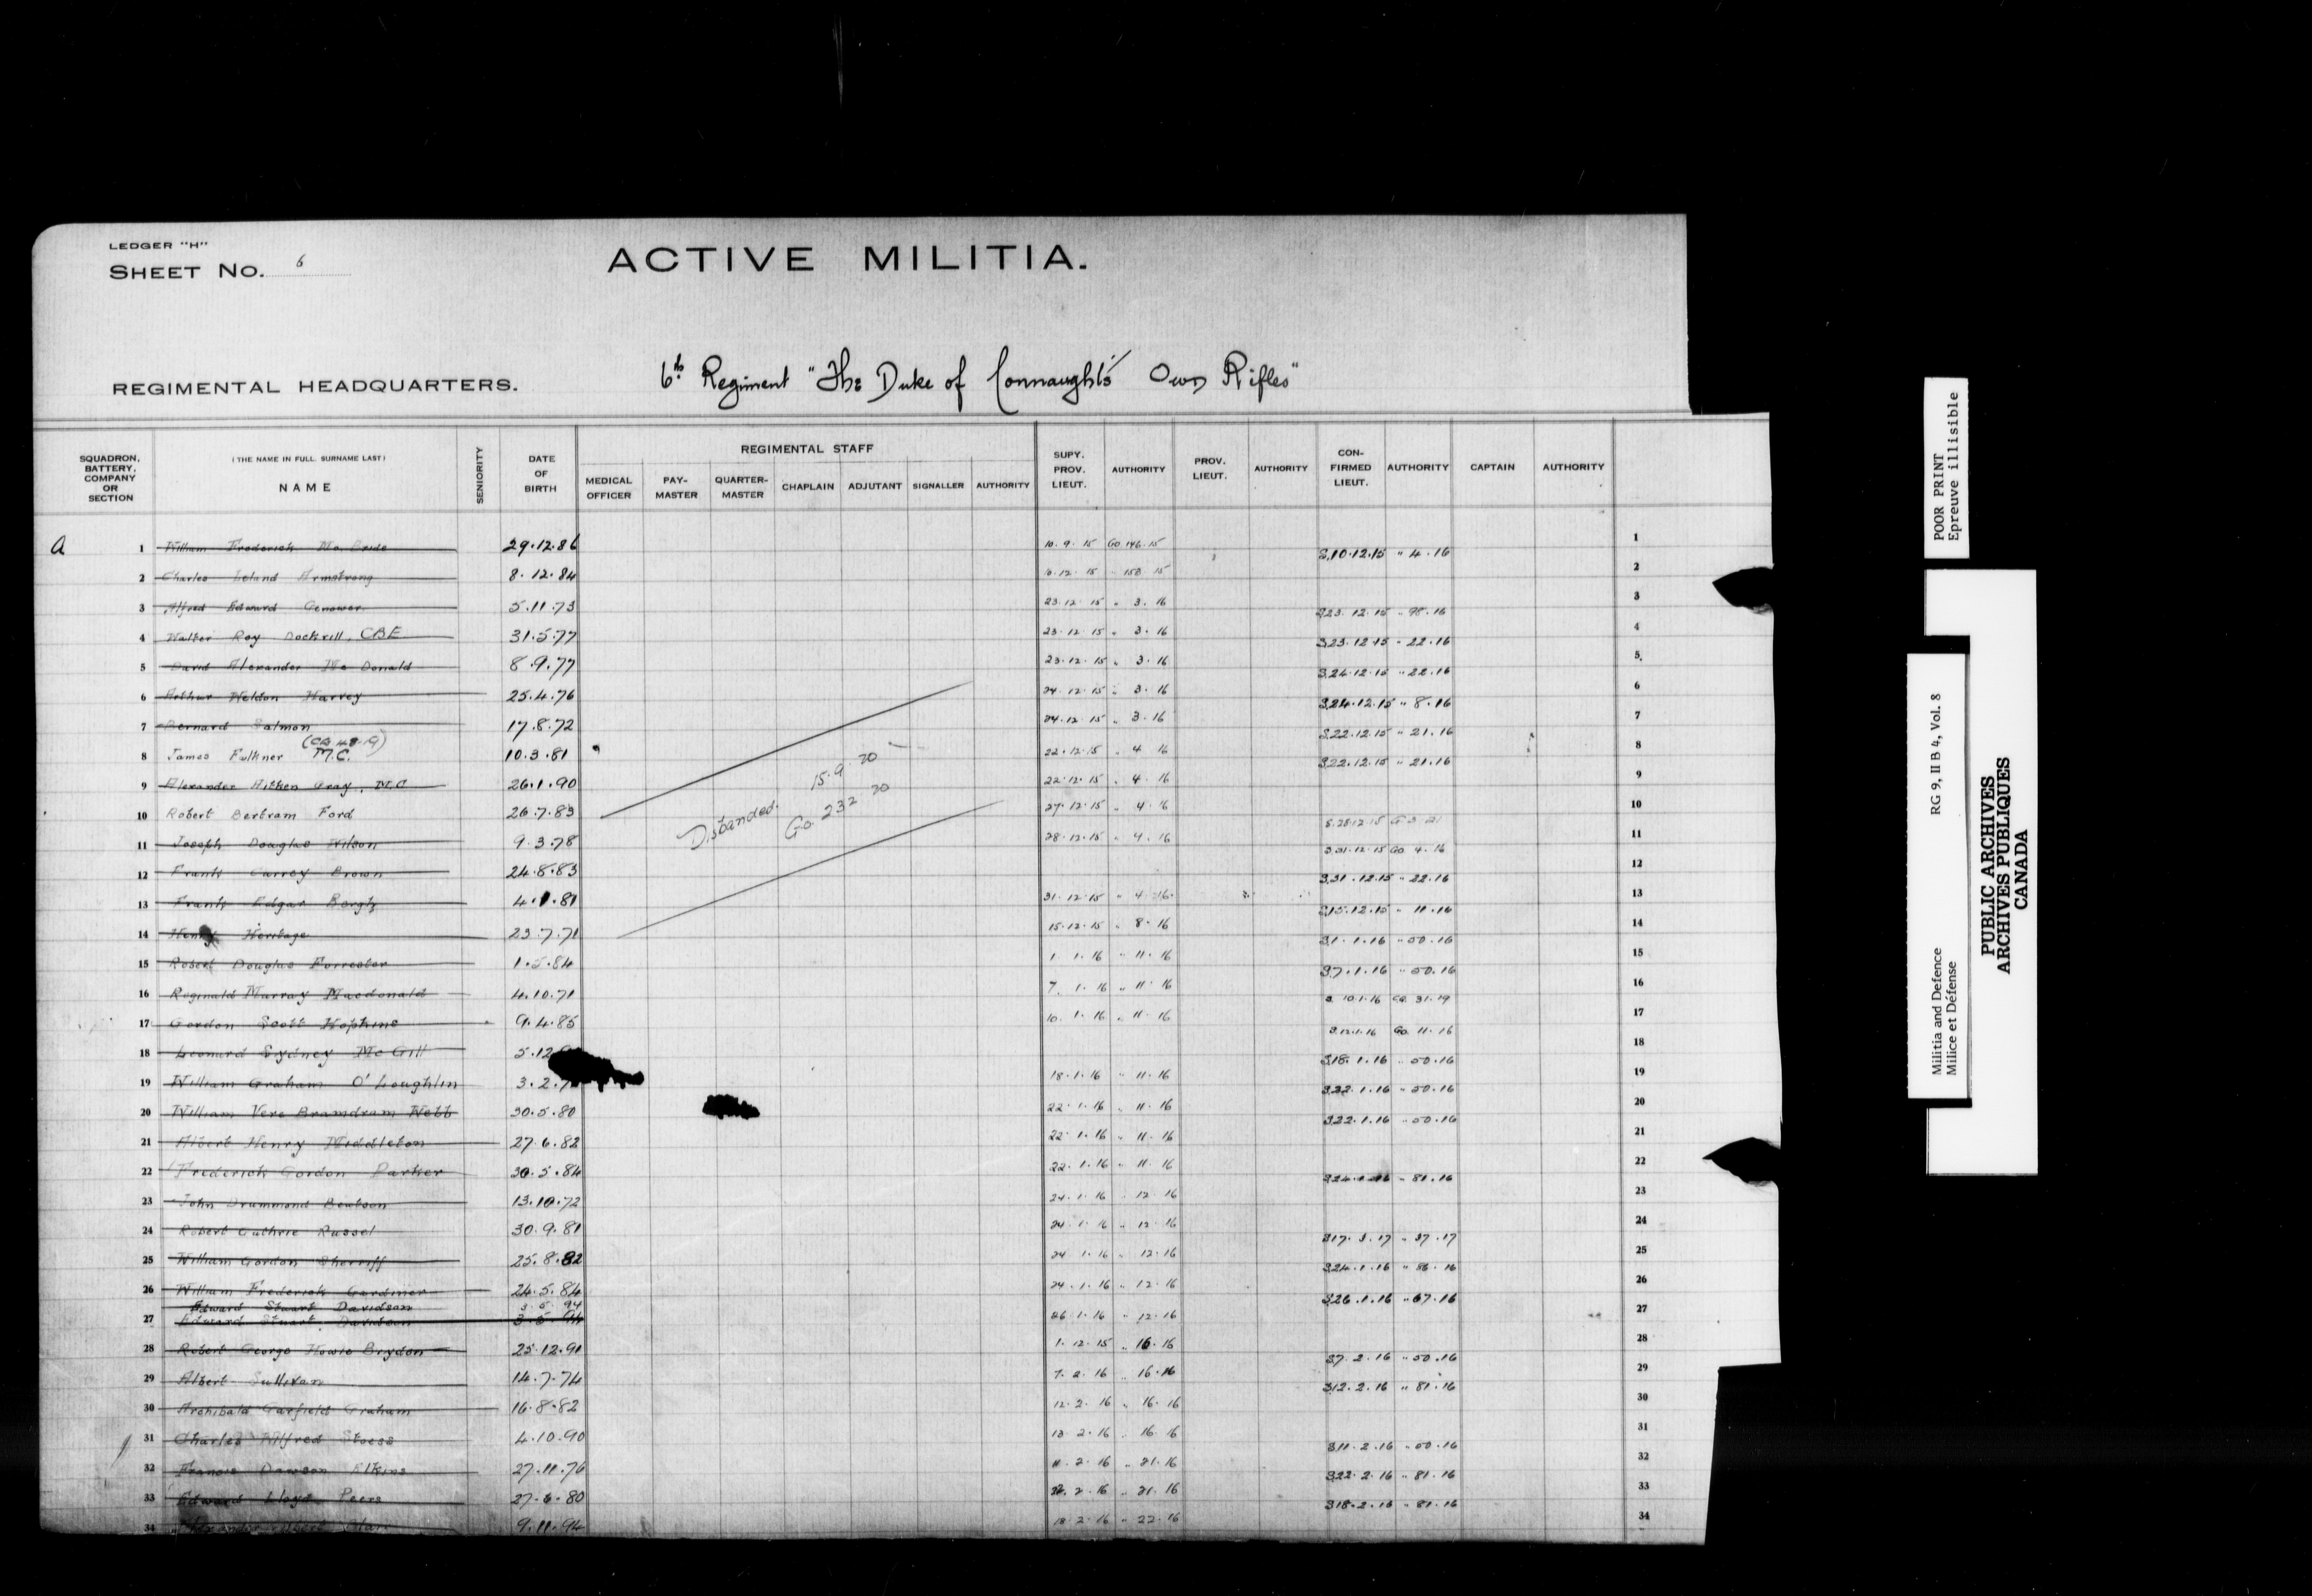 LEDGER "H"
SHEET NO. 6
ACTIVE MILITIA.
REGIMENTAL HEADQUARTERS.
6th Regiment "The Duke of Connaught's Own Rifles"
SQUADRON, BATTERY, COMPANY OR SECTION
(THE NAME IN FULL. SURNAME LAST) NAME
SENIORITY
DATE OF BIRTH
REGIMENTAL STAFF
MEDICAL OFFICER PAY-MASTER QUARTER-MASTER CHAPLAIN ADJUTANT SIGNALLER AUTHORITY
SUPY. PROV. LIEUT. AUTHORITY PROV. LIEUT. AUTHORITY CON-FIRMED LIEUT. AUTHORITY CAPTAIN AUTHORITY
A 1 William Frederick McBride 29.12.86 10.9.15 GO.146.15 1
S.10.12.15 " 4.16
2 Charles Leland Armstrong 8.12.84 " 158 15 2
3 Alfred Edward 5.11.73 23.12.15 " 3.16 3
S.23.12.15 " 98.16
4 Walter Roy Dockrill, CBE 31.5.77 23.12.15 " 3.16 4
S.23.12.15 " 22.16
5 David Alexander McDonald 8.9.77 23.12.15 " 3.16 5
S.24.12.15 " 22.16
6 Arthur Weldon Harvey 25.4.76 24.12.15 " 3.16 6
S.24.12.15 " 8.16
7 Bernard Salmon 17.8.72 24.12.15 " 3.16 7
S.22.12.15 " 21.16
8 James Falkner M.C. 10.3.81 22.12.15 " 4 16 8
S.22.12.15 " 21.16
9 Alexander Aitken Gray, M.C 26.1.90 22.12.15 " 4.16 9
10 Robert Bertram Ford 26.7.83 27.12.15 " 4.16 10
Disbanded. 15.9.20
G.O. 232 20
11 Joseph Douglas Wilson 9.3.78 28.12.15 " 4.16 11
S.31.12.15 GO 4.16
12 Frank Currey Brown 24.8.83 12
S.31.12.15 " 22.16
13 Frank Edgar 4.1.81 31.12.15 " 4.16 13
S.15.12.15 " 11.16
14 Henry Heritage 23.7.71 15.12.15 " 8.16 14
S.1.1.16 " 50.16
15 Robert Douglas Forrester 1.5.84 1.1.16 " 11.16 15
S.7.1.16 " 50.16
16 Reginald Murray Macdonald 4.10.71 7.1.16 " 11.16 16
S.10.1.16 31.19
17 Gordon Scott Hopkins 9.4.85 10.1.16 " 11.16 17
S.12.1.16 GO 11.16
18 Leonard Sydney McGill 5.12. 18
S.18.1.16 " 50.16
19 William Graham O'Loughlin 3.2. 18.1.16 " 11.16 19
S.22.1.16 " 50.16
20 William Vere Bramdram Webb 30.5.80 22.1.16 " 11.16 20
S.22.1.16 " 50.16
21 Albert Henry Middleton 27.6.82 22.1.16 " 11.16 21
22 Frederick Gordon Parker 30.5.84 22.1.16 " 11.16 22
S.24.1.16 " 81.16
23 John Drummond Beatson 13.10.72 24.1.16 " 12.16 23
24 Robert Guthrie Russel 30.9.81 24.1.16 " 12.16 24
S.17.3.17 " 37.17
25 William Gordon Sherriff 25.8.82 24.1.16 " 12.16 25
S.24.1.16 " 86.16
26 William Frederick Gardiner 24.5.84 24.1.16 " 12.16 26
Edward Stuart Davidson 3.5.94 S.26.1.16 " 67.16
27 Edward Stuart Davidson 3.5.94 26.1.16 " 12.16 27
28 Robert George Howie Brydon 25.12.91 1.12.15 " 16.16 28
S.7.2.16 " 50.16
29 Albert Sullivan 14.7.74 7.2.16 " 16.16 29
S.12.2.16 " 81.16
30 Archibald Garfield Graham 16.8.82 12.2.16 " 16.16 30
31 Charles Wilfred Stoess 4.10.90 13.2.16 " 16.16 31
S.11.2.16 " 50.16
32 Francis Dawson Elkins 27.11.76 11.2.16 " 21.16 32
S.22.2.16 " 81.16
33 Edward Lloyd Peers 27.6.80 22.2.16 " 21.16 33
S.18.2.16 " 81.16
34 9.11.94 18.2.16 " 22.16 34
POOR PRINT
Epreuve illisible
RG 9, II B 4, Vol. 8
Militia and Defence
Milice et Défense
PUBLIC ARCHIVES
ARCHIVES PUBLIQUES
CANADA